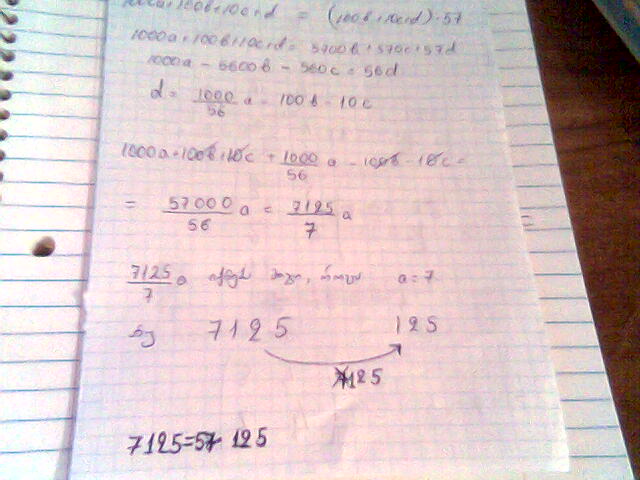 1000a+100b+10c+d = (100b+10c+d)·57
1000a+100b+10c+d = 5700b+570c+57d
1000a - 5600b - 560c = 56d
d = 1000/56 a - 100b - 10c
1000a+100b+10c + 1000/56 a - 100b - 10c =
= 57000/56 a = 7125/7 a
7125/7 a a=7
7125 125
7125
7125=57·125